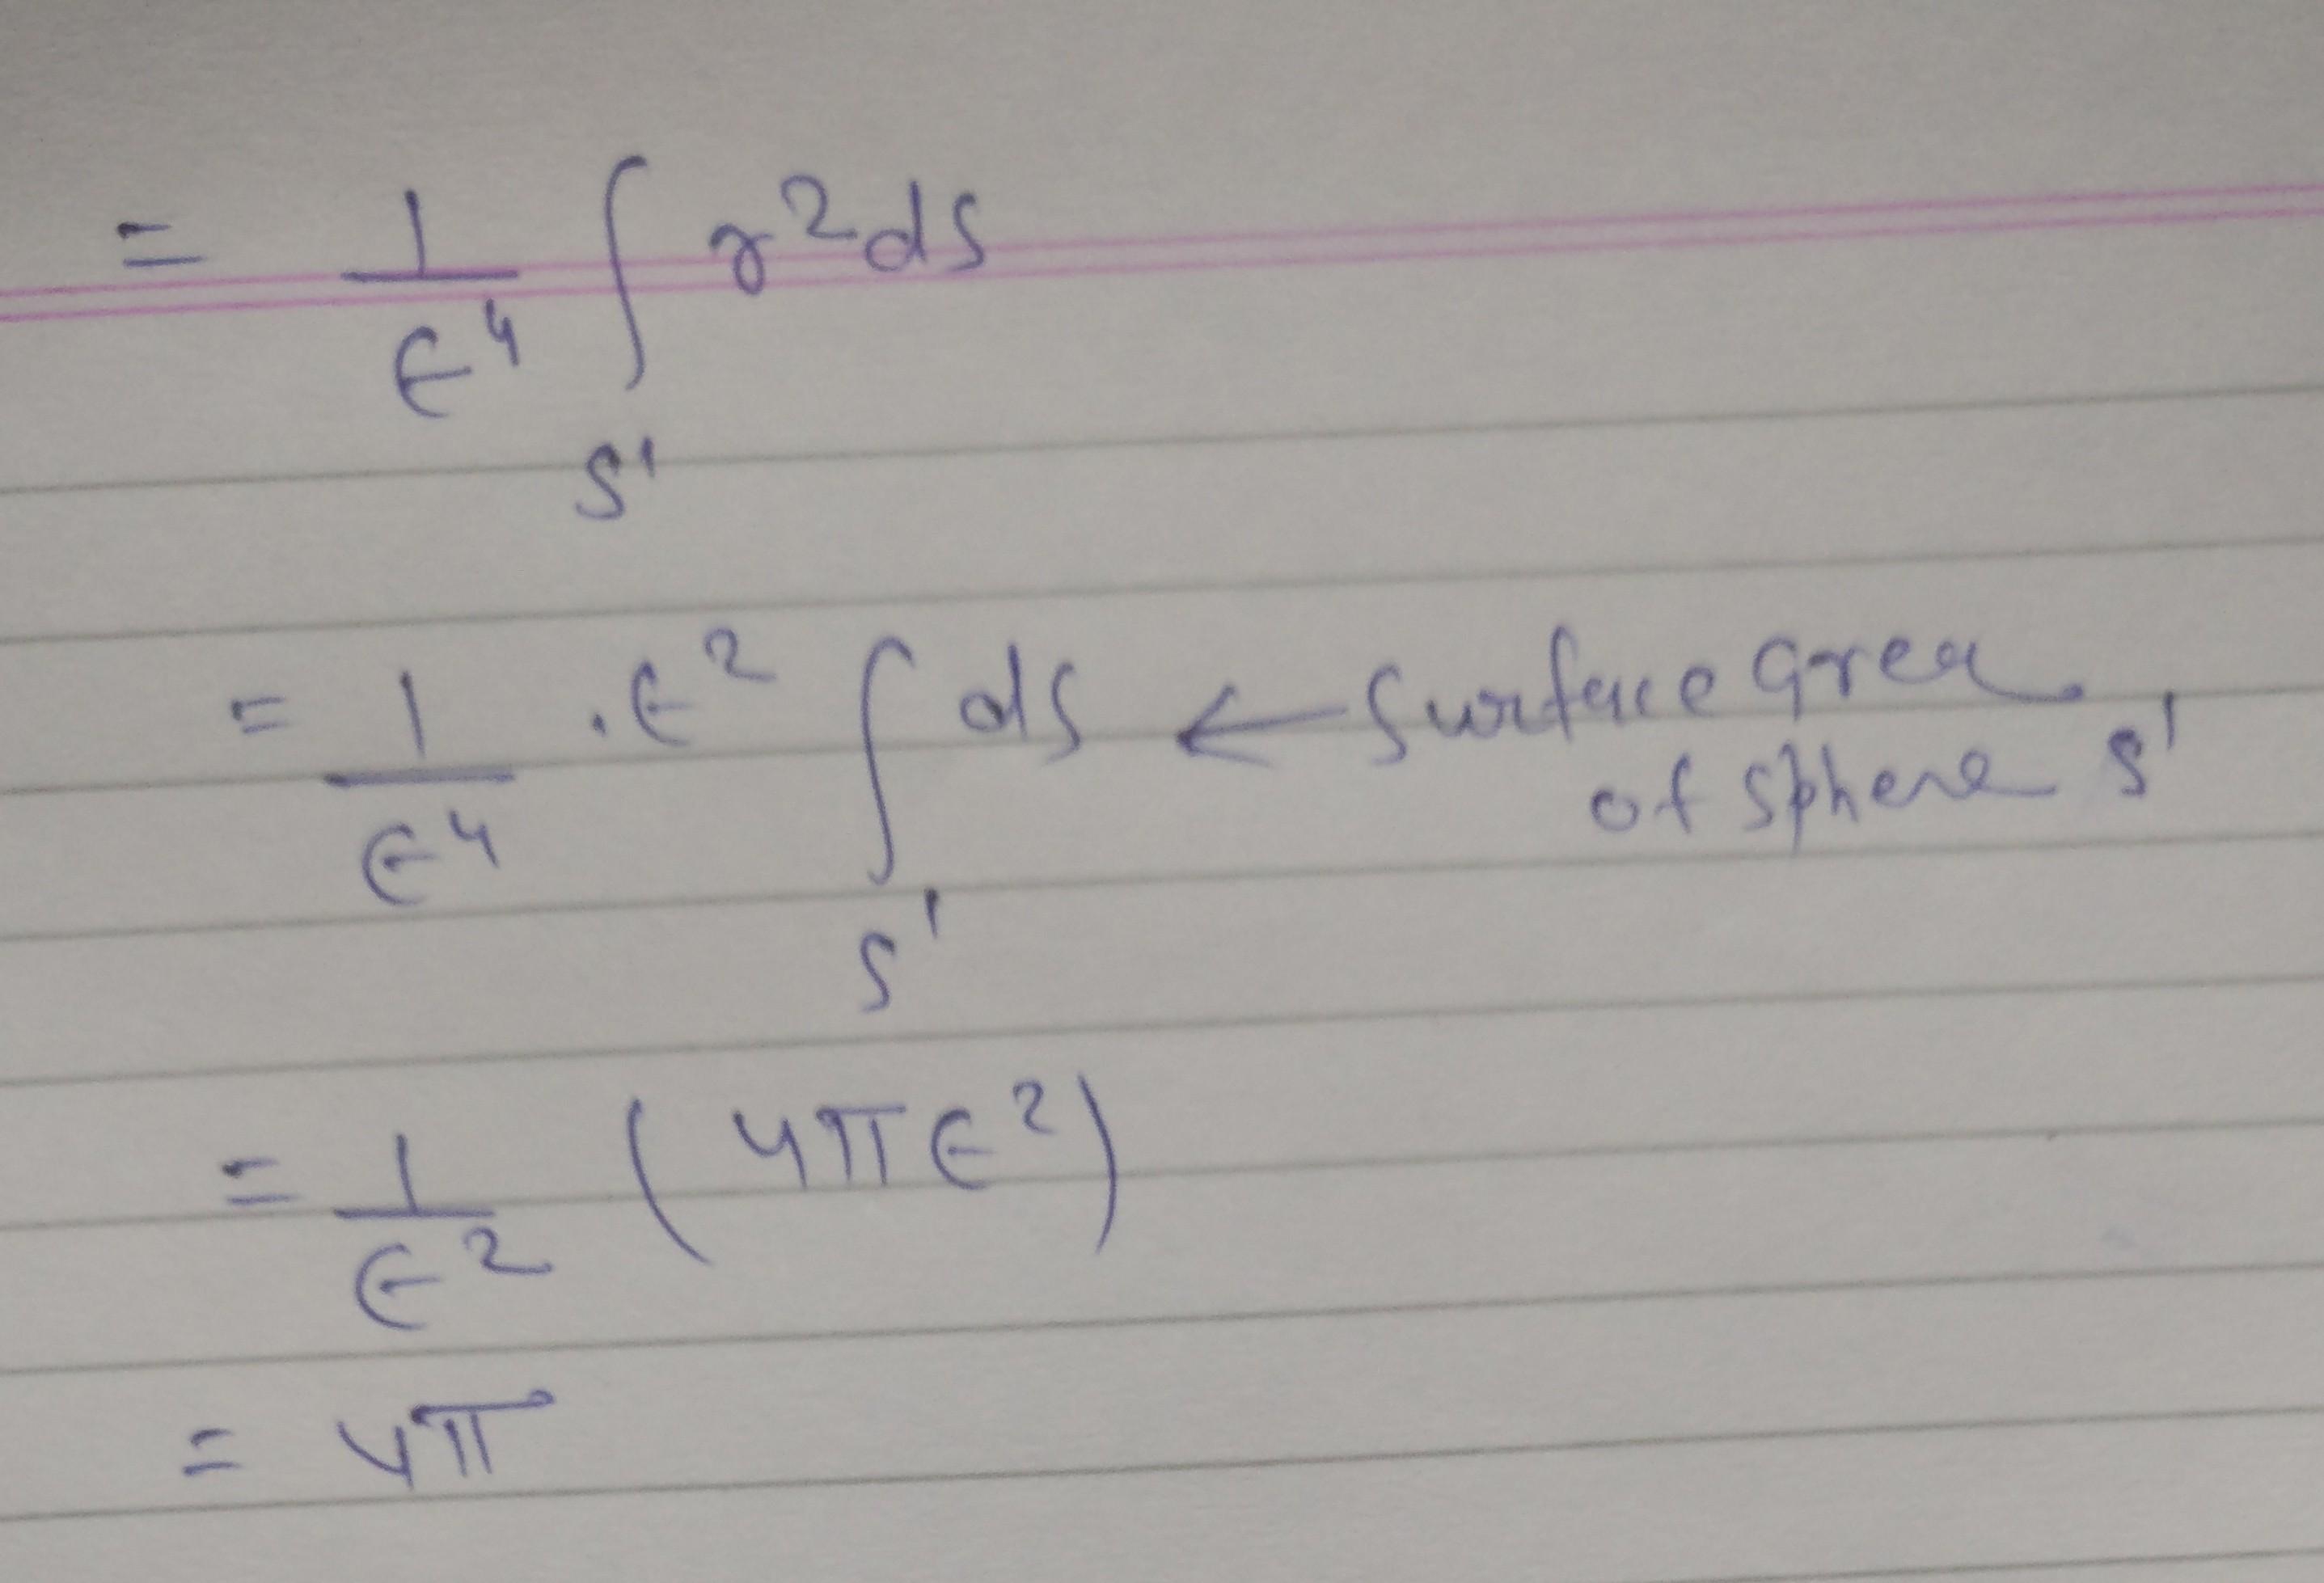 = 1/ϵ⁴ ∫_S' r² ds
= 1/ϵ⁴ . ϵ² ∫_S' ds ← Surface area
of sphere S'
= 1/ϵ² (4πϵ²)
= 4π